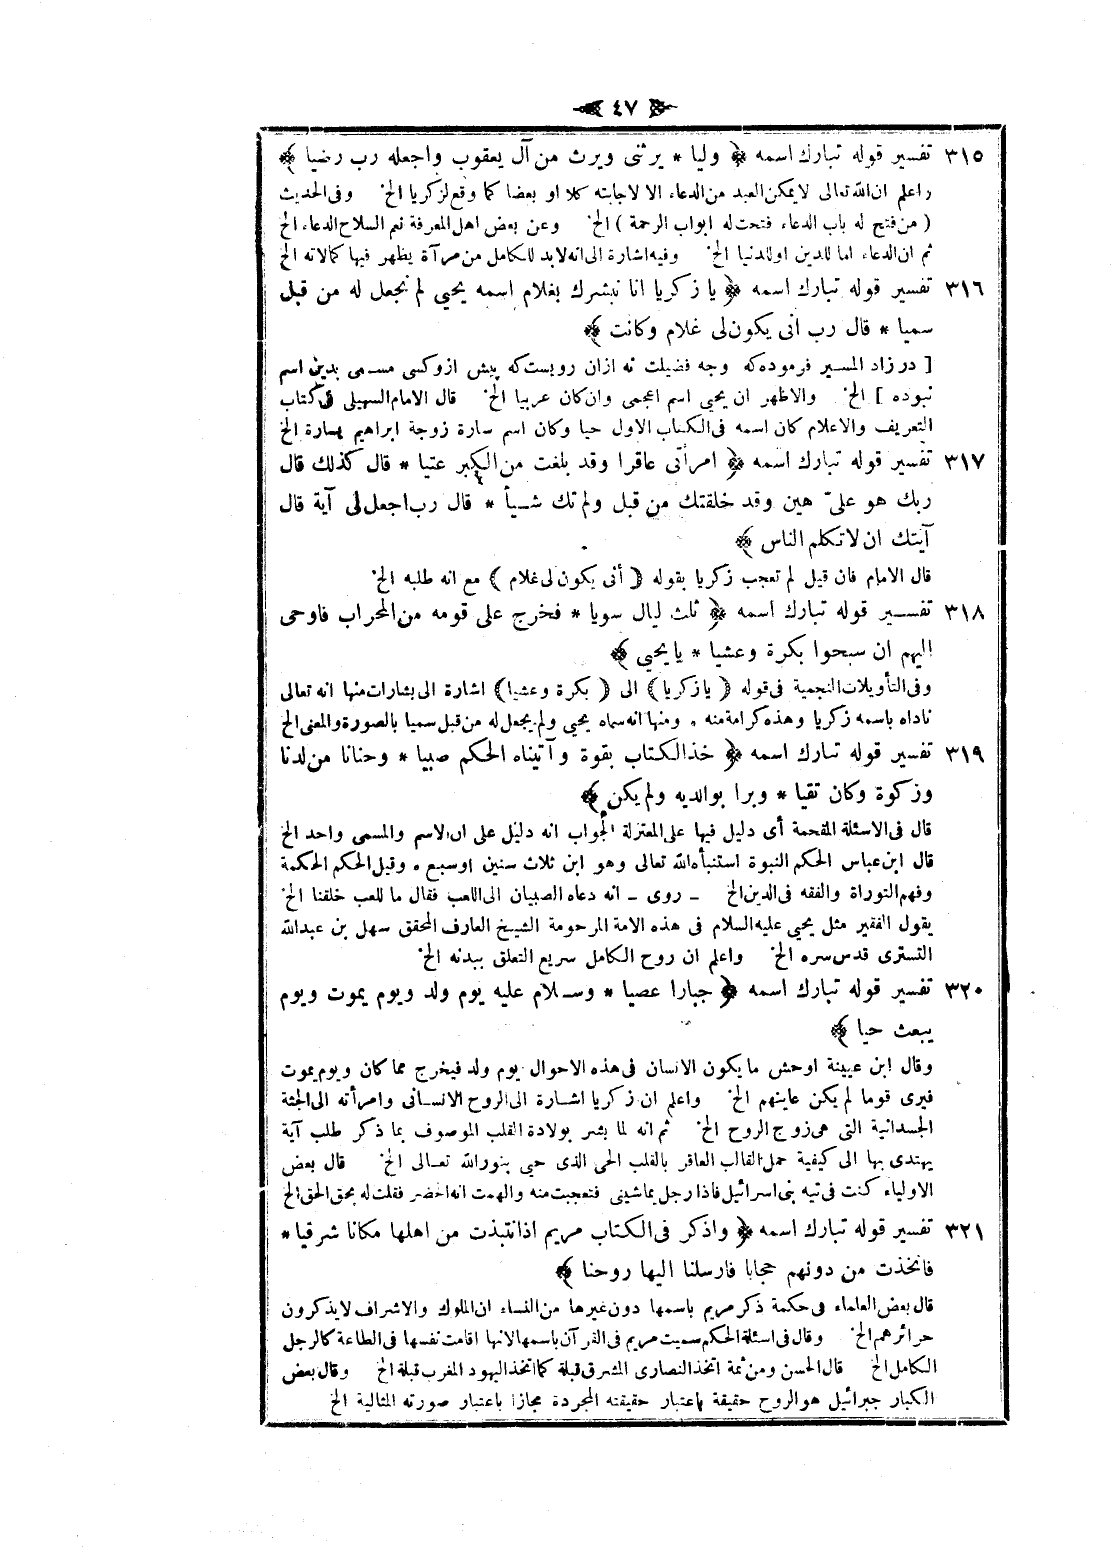 ٤٧
٣١٥ تفسير قوله تبارك اسمه ﴿ وليا * يرثنى ويرث من آل يعقوب واجعله رب رضيا ﴾
واعلم ان الله تعالى لا يمكن العبد من الدعاء الا لاجابته كلا او بعضا كما وقع لزكريا الخ وفى الحديث
( من فتح له باب الدعاء فتحت له ابواب الرحمة ) الخ وعن بعض اهل المعرفة نعم السلاح الدعاء الخ
ثم ان الدعاء اما للدين او للدنيا الخ وفيه اشارة الى انه لابد للكامل من مرآة يظهر فيها كمالاته الخ
٣١٦ تفسير قوله تبارك اسمه ﴿ يا زكريا انا نبشرك بغلام اسمه يحيى لم نجعل له من قبل
سميا * قال رب انى يكون لى غلام وكانت ﴾
[ در زاد المسير فرموده كه وجه فضيلت نه ازان رويست كه پيش ازو كسى مسمى بدين اسم
نبوده ] الخ والاظهر ان يحيى اسم اعجمى وان كان عربيا الخ قال الامام السهيلى فى كتاب
التعريف والاعلام كان اسمه فى الكتاب الاول حيا وكان اسم سارة زوجة ابراهيم يسارة الخ
٣١٧ تفسير قوله تبارك اسمه ﴿ امرأتى عاقرا وقد بلغت من الكبر عتيا * قال كذلك قال
ربك هو علىّ هين وقد خلقتك من قبل ولم تك شيأ * قال رب اجعل لى آية قال
آيتك ان لا تكلم الناس ﴾
قال الامام فان قيل لم تعجب زكريا بقوله ( أنى يكون لى غلام ) مع انه طلبه الخ
٣١٨ تفسير قوله تبارك اسمه ﴿ ثلث ليال سويا * فخرج على قومه من المحراب فاوحى
اليهم ان سبحوا بكرة وعشيا * يا يحيى ﴾
وفى التأويلات النجمية فى قوله ( يا زكريا ) الى ( بكرة وعشيا ) اشارة الى بشارات منها انه تعالى
ناداه باسمه زكريا وهذه كرامة منه . ومنها انه سماه يحيى ولم يجعل له من قبل سميا بالصورة والمعنى الخ
٣١٩ تفسير قوله تبارك اسمه ﴿ خذ الكتاب بقوة وآتيناه الحكم صبيا * وحنانا من لدنا
وزكوة وكان تقيا * وبرا بوالديه ولم يكن ﴾
قال فى الاسئلة المقحمة أى دليل فيها على المعتزلة الجواب انه دليل على ان الاسم والمسمى واحد الخ
قال ابن عباس الحكم النبوة استنبأه الله تعالى وهو ابن ثلاث سنين او سبع . وقيل الحكم الحكمة
وفهم التوراة والفقه فى الدين الخ ـ روى ـ انه دعاه الصبيان الى اللعب فقال ما للعب خلقنا الخ
يقول الفقير مثل يحيى عليه السلام فى هذه الامة المرحومة الشيخ العارف المحقق سهل بن عبدالله
التسترى قدس سره الخ واعلم ان روح الكامل سريع التعلق ببدنه الخ
٣٢٠ تفسير قوله تبارك اسمه ﴿ جبارا عصيا * وسلام عليه يوم ولد ويوم يموت ويوم
يبعث حيا ﴾
وقال ابن عيينة اوحش ما يكون الانسان فى هذه الاحوال يوم ولد فيخرج مما كان ويوم يموت
فيرى قوما لم يكن عاينهم الخ واعلم ان زكريا اشارة الى الروح الانسانى وامرأته الى الجثة
الجسدانية التى هى زوج الروح الخ ثم انه لما بشر بولادة القلب الموصوف بما ذكر طلب آية
يهتدى بها الى كيفية حمل القالب العاقر بالقلب الحى الذى حيى بنور الله تعالى الخ قال بعض
الاولياء كنت فى تيه بنى اسرائيل فاذا رجل يماشينى فتعجبت منه والهمت انه الخضر فقلت له بحق الحق الخ
٣٢١ تفسير قوله تبارك اسمه ﴿ واذكر فى الكتاب مريم اذ انتبذت من اهلها مكانا شرقيا *
فاتخذت من دونهم حجابا فارسلنا اليها روحنا ﴾
قال بعض العلماء فى حكمة ذكر مريم باسمها دون غيرها من النساء ان الملوك والاشراف لا يذكرون
حرائرهم الخ وقال فى اسئلة الحكم سميت مريم فى القرآن باسمها لانها اقامت نفسها فى الطاعة كالرجل
الكامل الخ قال الحسن ومن ثمة اتخذ النصارى المشرق قبلة كما اتخذ اليهود المغرب قبلة الخ وقال بعض
الكبار جبرائيل هو الروح حقيقة باعتبار حقيقته المجردة مجازا باعتبار صورته المثالية الخ